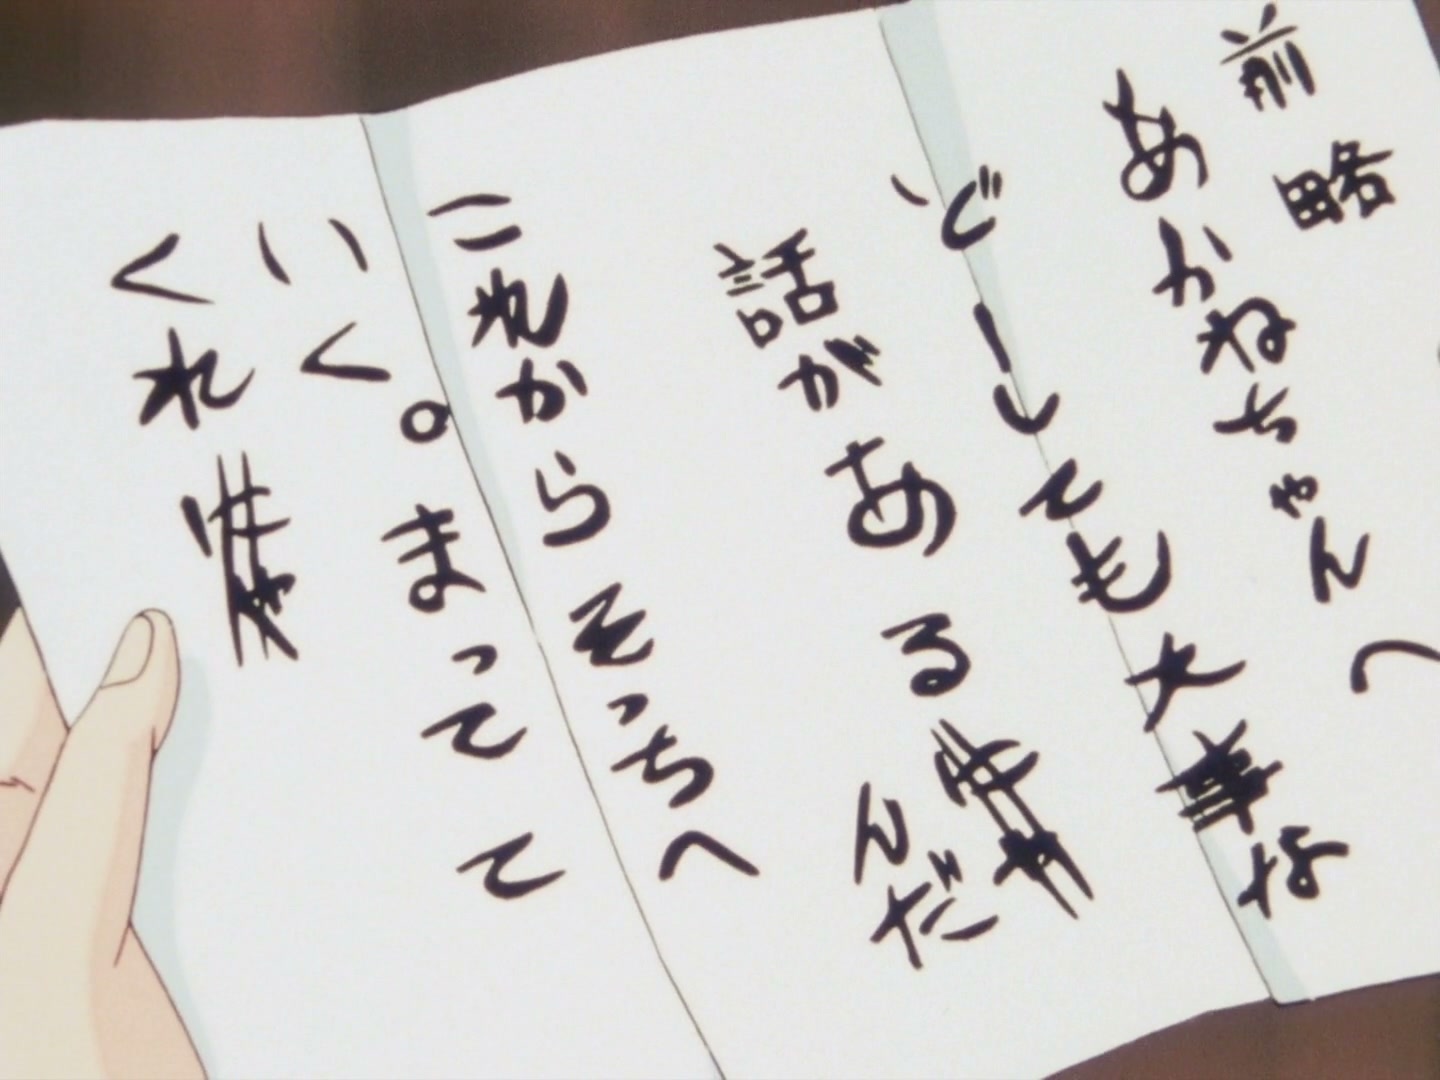 前略
あかねちゃんへ
どーしても大事な
話がある
んだ
これからそっちへ
いく。まってて
くれ